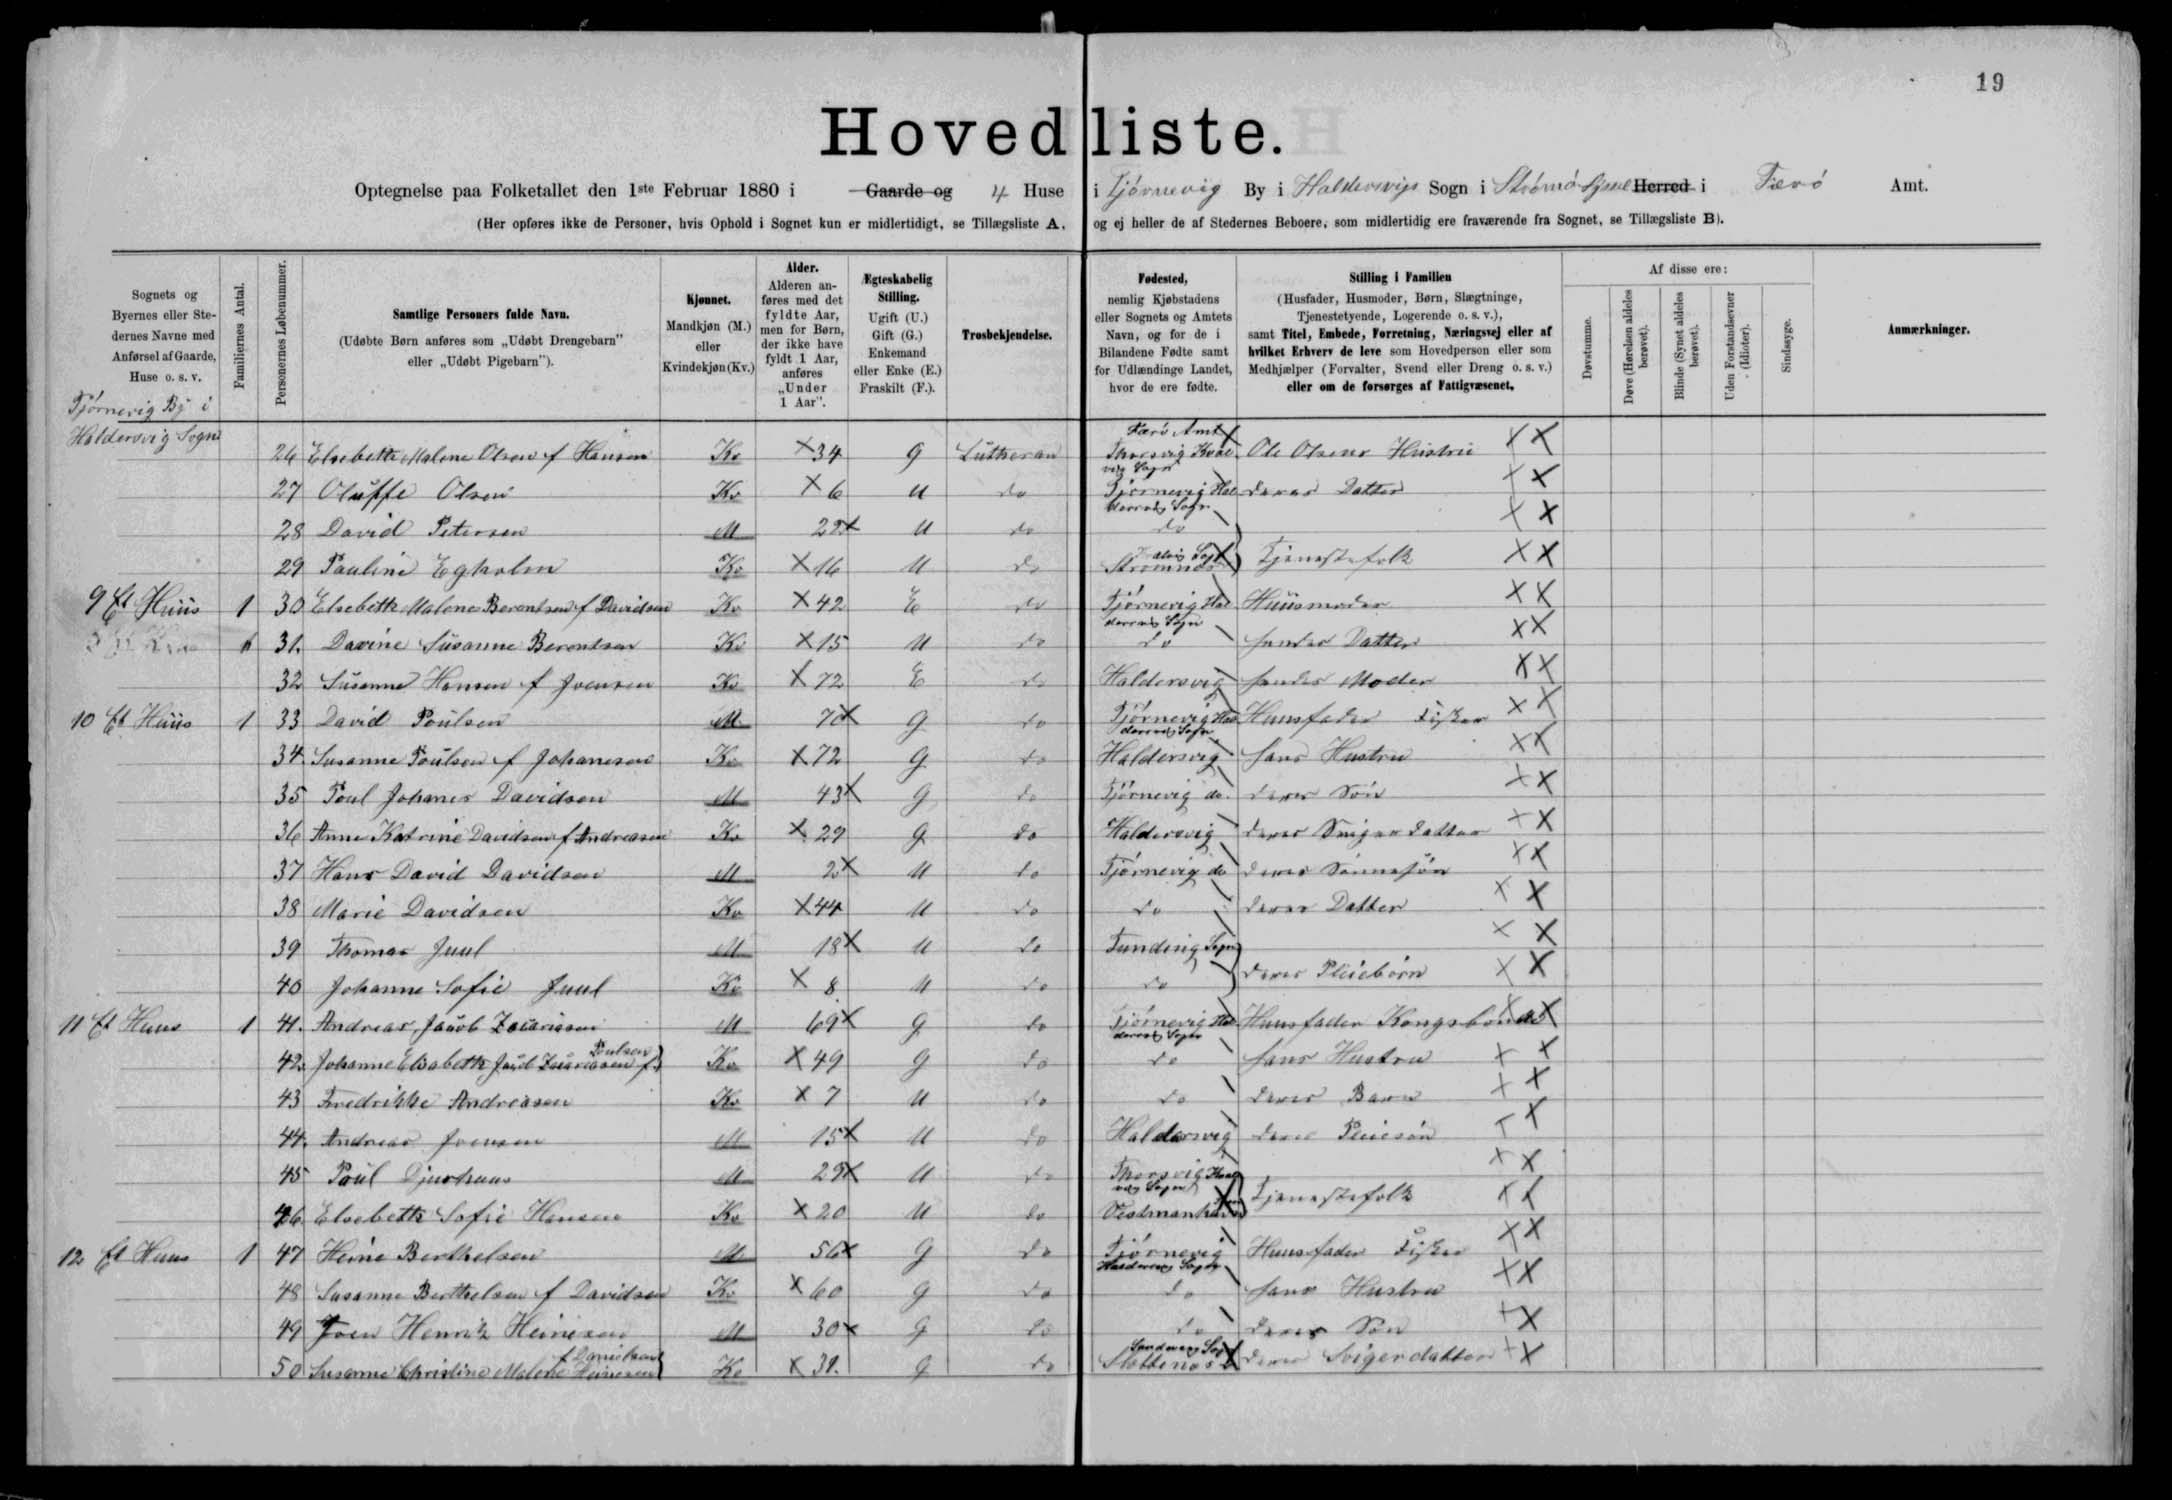 19
Hovedliste.
Optegnelse paa Folketallet den 1ste Februar 1880 i Gaarde og 4 Huse i Tjørnevig By i Haldersvigs Sogn i Strömö Syssel Herred i Færö Amt.
(Her opføres ikke de Personer, hvis Ophold i Sognet kun er midlertidigt, se Tillægsliste A, og ej heller de af Stedernes Beboere, som midlertidig ere fraværende fra Sognet, se Tillægsliste B).
Sognets og Byernes eller Stedernes Navne med Anførsel af Gaarde, Huse o. s. v.
Familiernes Antal.
Personernes Løbenummer.
Samtlige Personers fulde Navn. (Udøbte Børn anføres som „Udøbt Drengebarn" eller „Udøbt Pigebarn").
Kjønnet. Mandkjøn (M.) eller Kvindekjøn (Kv.)
Alder. Alderen anføres med det fyldte Aar, men for Børn, der ikke have fyldt 1 Aar, anføres „Under 1 Aar".
Ægteskabelig Stilling. Ugift (U.) Gift (G.) Enkemand eller Enke (E.) Fraskilt (F.).
Trosbekjendelse.
Fødested, nemlig Kjøbstadens eller Sognets og Amtets Navn, og for de i Bilandene Fødte samt for Udlændinge Landet, hvor de ere fødte.
Stilling i Familien (Husfader, Husmoder, Børn, Slægtninge, Tjenestetyende, Logerende o. s. v.), samt Titel, Embede, Forretning, Næringsvej eller af hvilket Erhverv de leve som Hovedperson eller som Medhjælper (Forvalter, Svend eller Dreng o. s. v.) eller om de forsørges af Fattigvæsenet.
Af disse ere:
Døvstumme.
Døve (Hørelsen aldeles berøvet).
Blinde (Synet aldeles berøvet).
Uden Forstandsevner (Idioter).
Sindssyge.
Anmærkninger.
Tjörnevig By i
Haldersvig Sogn
26 Elsebeth Malene Olsen f Hansen Kv 34 G Lutheran Færö Amt Thorsvig Kvalvig Sogn Ole Olsens Hustru
27 Oluffe Olsen Kv 6 U do Tjörnevig Haldersvig Sogn deres Datter
28 David Petersen M 29 U do do
29 Pauline Egholm Kv 16 U do Kvalvig Sogn Strömnæs Tjenestefolk
9 Et Huus 1 30 Elsebeth Malene Berentsen f Davidsen Kv 42 E do Tjörnevig Haldersvig Sogn Huusmoder
31. Davine Susanne Berentsen Kv 15 U do do hendes Datter
32 Susanne Hansen f Joensen Kv 72 E do Haldersvig hendes Moder
10 Et Huus 1 33 David Poulsen M 70 G do Tjörnevig Haldersvig Sogn Huusfader Fisker
34. Susanne Poulsen f Johanesen Kv 72 G do Haldersvig hans Hustru
35 Poul Johanes Davidsen M 43 G do Tjörnevig do. deres Sön
36 Anne Katrine Davidsen f Andreasen Kv 29 G do Haldersvig deres Svigerdatter
37 Hans David Davidsen M 2 U do Tjörnevig do deres Sönnesön
38 Marie Davidsen Kv 44 U do do deres Datter
39 Thomas Juul M 18 U do Funding Sogn
40 Johanne Sofie Juul Kv 8 U do do deres Pleiebörn
11 Et Huus 1 41. Andreas Jacob Zacariasen M 69 G do Tjörnevig Haldersvig Sogn Huusfader Kongsbonde
42. Johanne Elisabeth Jacob Zacariasen f. Poulsen Kv 49 G do do hans Hustru
43 Fredrikke Andreasen Kv 7 U do do deres Barn
44. Andreas Joensen M 15 U do Haldersvig deres Pleiesön
45 Poul Djurhuus M 29 U do Thorsvig Kvalvig Sogn
46 Elsebeth Sofie Hansen Kv 20 U do Vestmanhavn Tjenestefolk
12 Et Huus 1 47 Heine Berthelsen M 56 G do Tjörnevig Haldersvig Sogn Huusfader Fisker
48 Susanne Berthelsen f Davidsen Kv 60 G do do hans Hustru
49 Joen Henrik Heinesen M 30 G do do deres Sön
50 Susanne Christine Malene Heinesen f Danielsen Kv 31. G do Slettenæs deres Svigerdatter